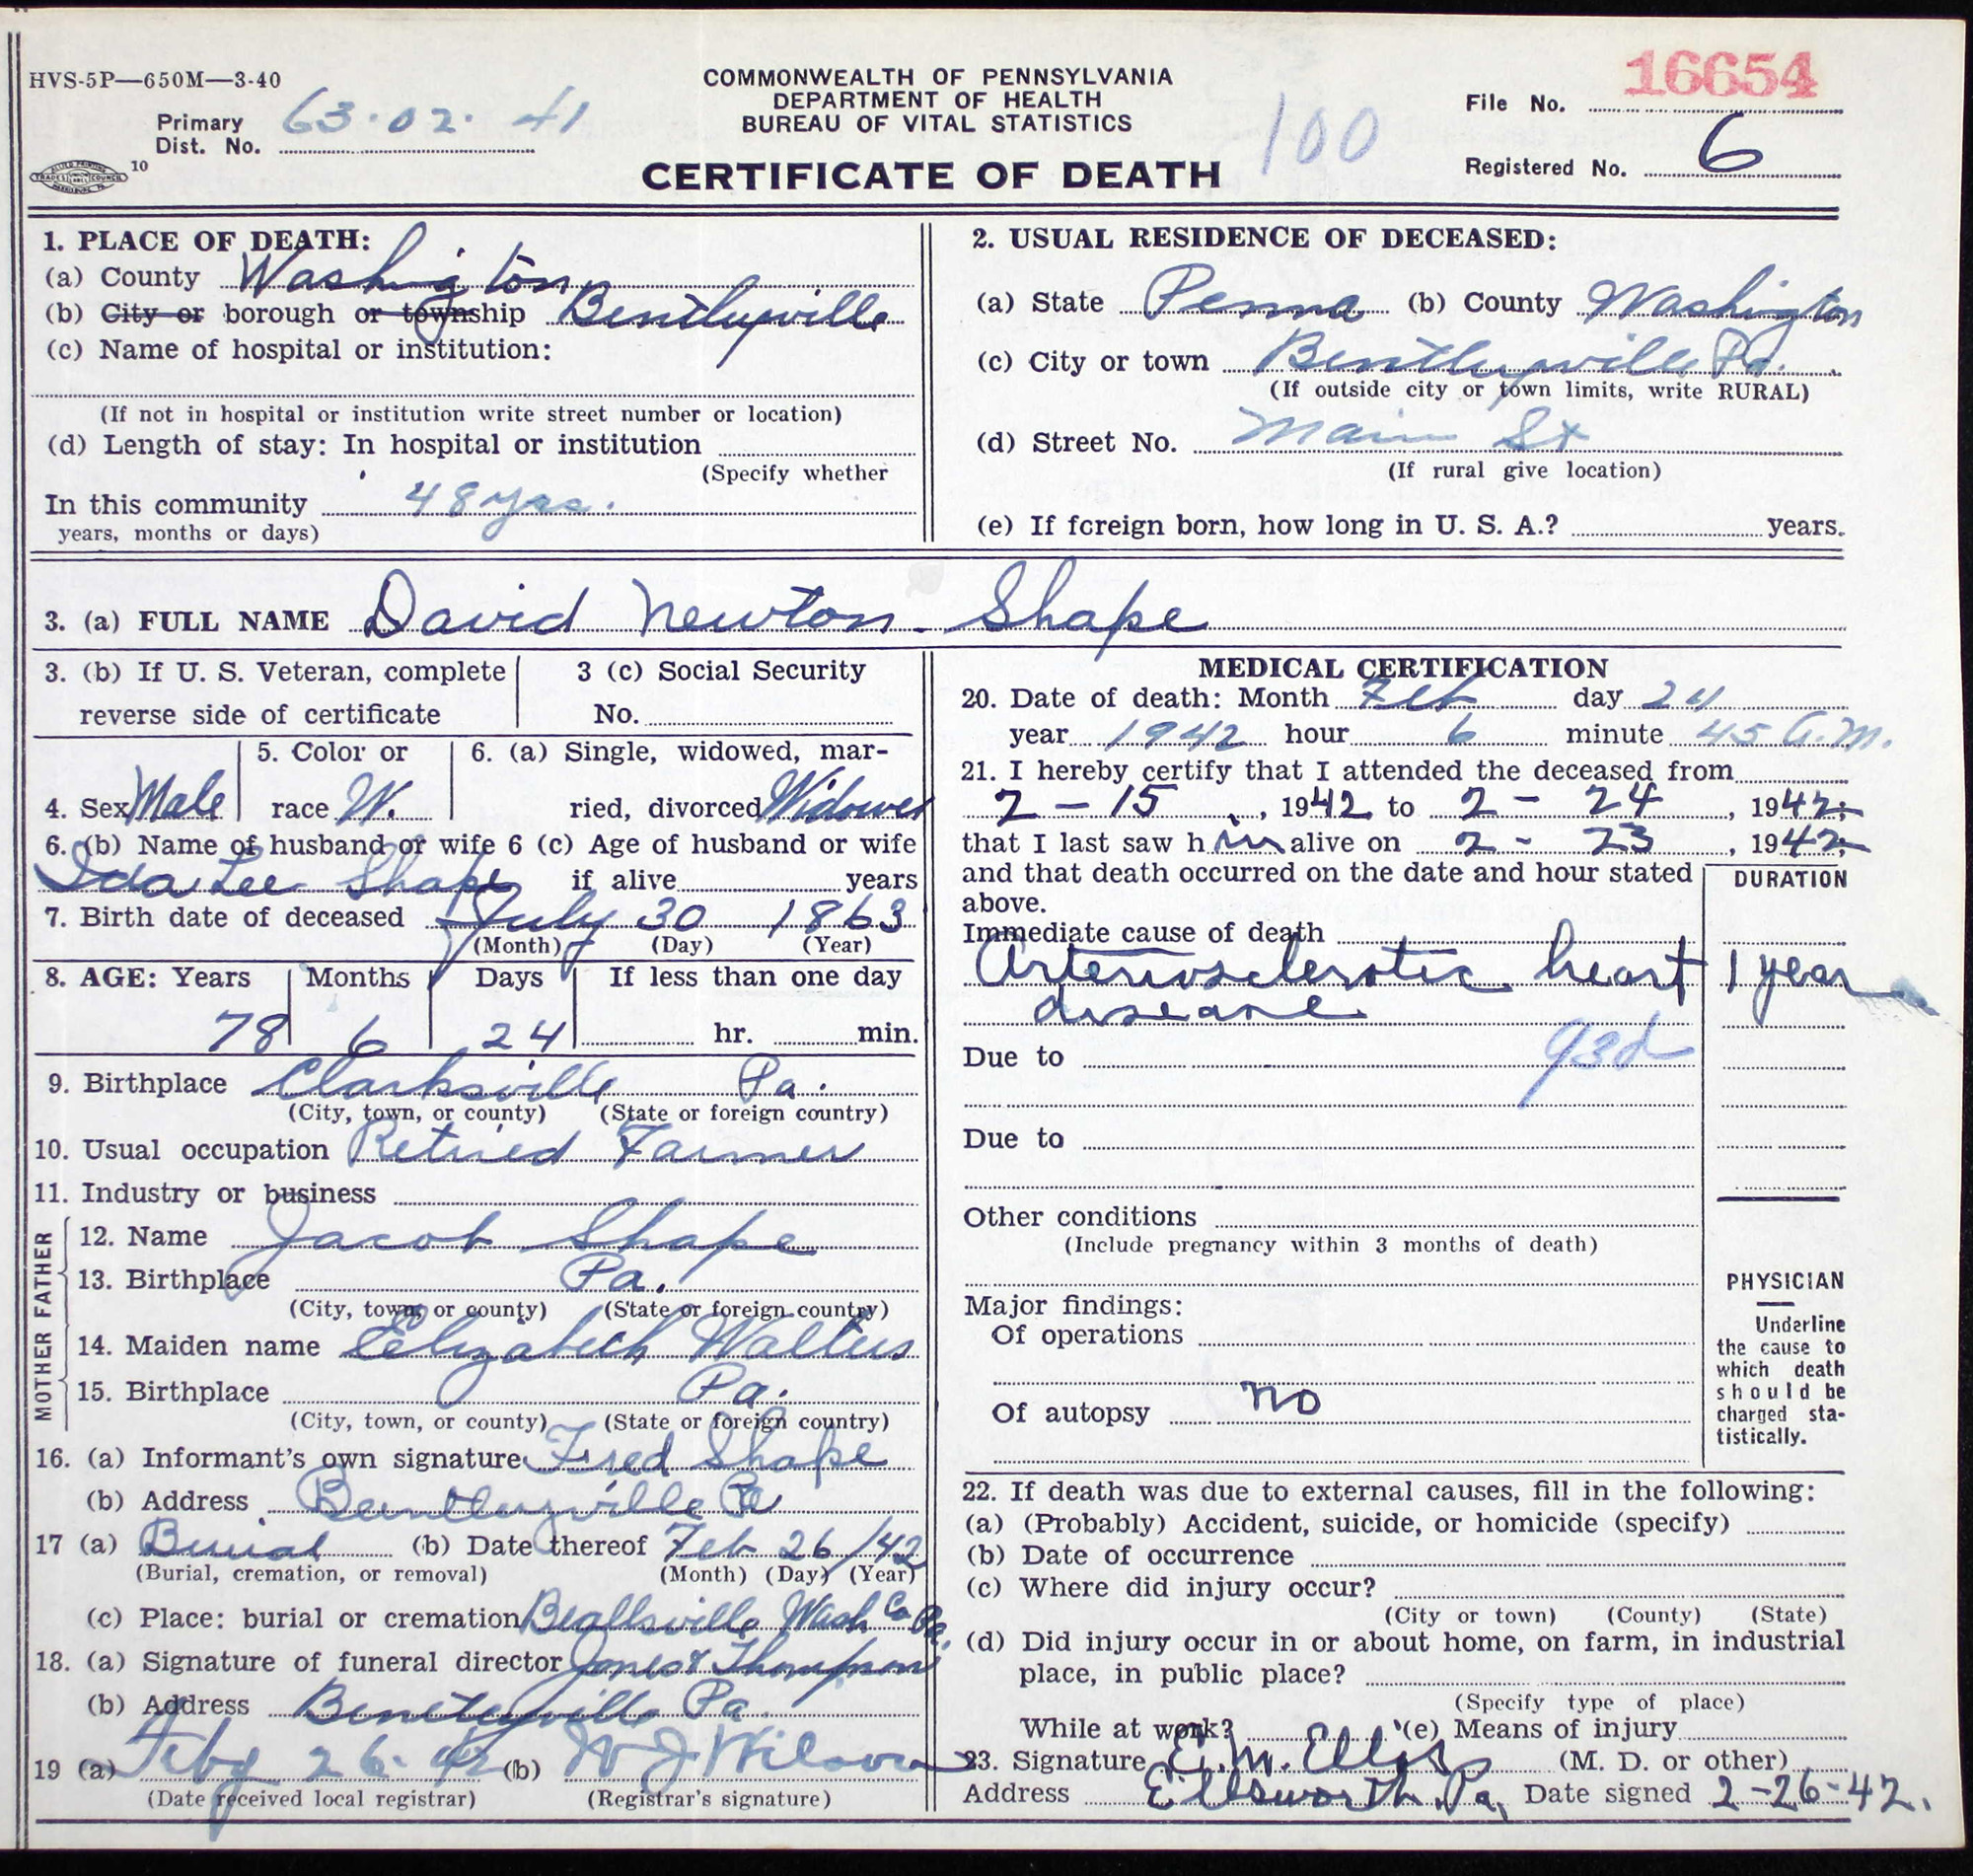 HVS-5P—650M—3-40
COMMONWEALTH OF PENNSYLVANIA
DEPARTMENT OF HEALTH
BUREAU OF VITAL STATISTICS
CERTIFICATE OF DEATH
100
16654
File No.
Registered No. 6
Primary
Dist. No. 63·02·41
10
1. PLACE OF DEATH:
(a) County Washington
(b) City or borough or township Bentleyville
(c) Name of hospital or institution:
(If not in hospital or institution write street number or location)
(d) Length of stay: In hospital or institution
(Specify whether
In this community 48 yrs.
years, months or days)
2. USUAL RESIDENCE OF DECEASED:
(a) State Penna (b) County Washington
(c) City or town Bentleyville Pa.
(If outside city or town limits, write RURAL)
(d) Street No. Main St
(If rural give location)
(e) If foreign born, how long in U. S. A.? years.
3. (a) FULL NAME David Newton Shape
3. (b) If U. S. Veteran, complete
reverse side of certificate
3 (c) Social Security
No.
4. Sex Male
5. Color or
race W.
6. (a) Single, widowed, mar-
ried, divorced Widower
6. (b) Name of husband or wife 6 (c) Age of husband or wife
Ida Lee Shape if alive years
7. Birth date of deceased July 30 1863
(Month) (Day) (Year)
8. AGE: Years Months Days If less than one day
78 6 24 hr. min.
9. Birthplace Clarksville Pa.
(City, town, or county) (State or foreign country)
10. Usual occupation Retired Farmer
11. Industry or business
FATHER
12. Name Jacob Shape
13. Birthplace Pa.
(City, town, or county) (State or foreign country)
MOTHER
14. Maiden name Elizabeth Walters
15. Birthplace Pa.
(City, town, or county) (State or foreign country)
16. (a) Informant's own signature Fred Shape
(b) Address Bentleyville Pa
17 (a) Burial (b) Date thereof Feb 26/42
(Burial, cremation, or removal) (Month) (Day) (Year)
(c) Place: burial or cremation Beallsville Wash Co Pa.
18. (a) Signature of funeral director Jones & Thompson
(b) Address Bentleyville Pa.
19 (a) Feby 26-42 (b) W J Wilson
(Date received local registrar) (Registrar's signature)
MEDICAL CERTIFICATION
20. Date of death: Month Feb day 24
year 1942 hour 6 minute 45 A.M.
21. I hereby certify that I attended the deceased from
2 - 15, 1942 to 2 - 24, 1942;
that I last saw him alive on 2 - 23, 1942;
and that death occurred on the date and hour stated
above.
DURATION
Immediate cause of death
Arteriosclerotic heart 1 year
disease
Due to 93d
Due to
Other conditions
(Include pregnancy within 3 months of death)
Major findings:
Of operations
Of autopsy no
PHYSICIAN
Underline
the cause to
which death
should be
charged sta-
tistically.
22. If death was due to external causes, fill in the following:
(a) (Probably) Accident, suicide, or homicide (specify)
(b) Date of occurrence
(c) Where did injury occur?
(City or town) (County) (State)
(d) Did injury occur in or about home, on farm, in industrial
place, in public place?
(Specify type of place)
While at work? (e) Means of injury
23. Signature E. M. Ellis (M. D. or other)
Address Ellsworth, Pa. Date signed 2-26-42.